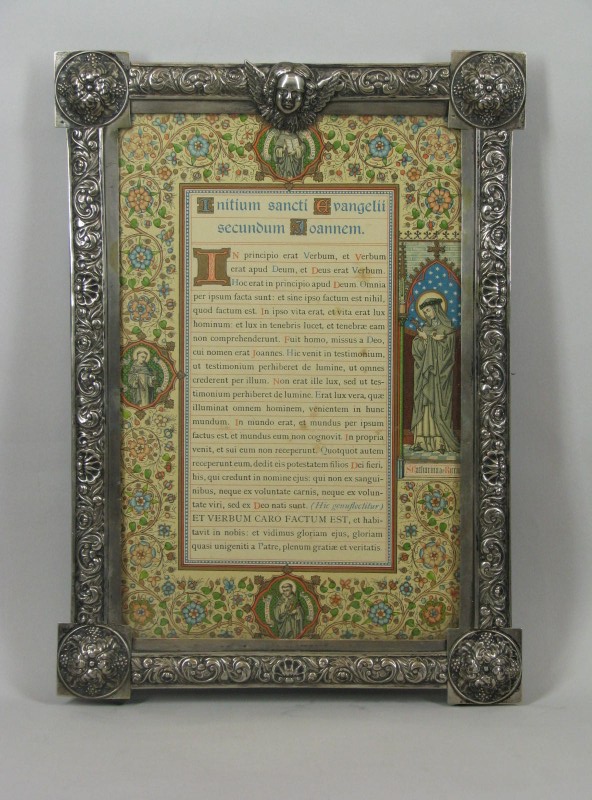 Initium sancti Evangelii
secundum Joannem.
IN principio erat Verbum, et Verbum
erat apud Deum, et Deus erat Verbum.
Hoc erat in principio apud Deum. Omnia
per ipsum facta sunt: et sine ipso factum est nihil,
quod factum est. In ipso vita erat, et vita erat lux
hominum: et lux in tenebris lucet, et tenebræ eam
non comprehenderunt. Fuit homo, missus a Deo,
cui nomen erat Joannes. Hic venit in testimonium,
ut testimonium perhiberet de lumine, ut omnes
crederent per illum. Non erat ille lux, sed ut tes-
timonium perhiberet de lumine. Erat lux vera, quæ
illuminat omnem hominem, venientem in hunc
mundum. In mundo erat, et mundus per ipsum
factus est, et mundus eum non cognovit. In propria
venit, et sui eum non receperunt. Quotquot autem
receperunt eum, dedit eis potestatem filios Dei fieri,
his, qui credunt in nomine ejus: qui non ex sangui-
nibus, neque ex voluntate carnis, neque ex volun-
tate viri, sed ex Deo nati sunt. (Hic genuflectitur)
ET VERBUM CARO FACTUM EST, et habi-
tavit in nobis: et vidimus gloriam ejus, gloriam
quasi unigeniti a Patre, plenum gratiæ et veritatis.